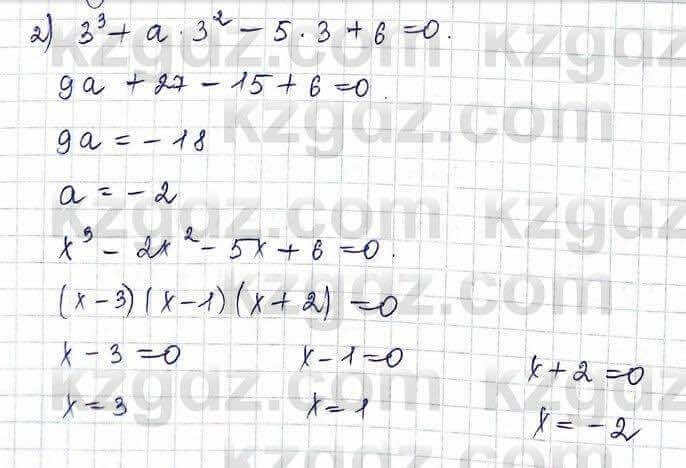 2) 3³ + a · 3² − 5 · 3 + 6 = 0.
kzgdz.com kzgdz
9a + 27 − 15 + 6 = 0.
kzgdz.com
9a = − 18
a = − 2
kzgdz.com kzgdz
x³ − 2x² − 5x + 6 = 0.
(x − 3)(x − 1)(x + 2) = 0
kzgdz.com
x − 3 = 0 x − 1 = 0 x + 2 = 0
kzgdz.com kzgdz
x = 3 x = 1 x = − 2
kzgdz.com